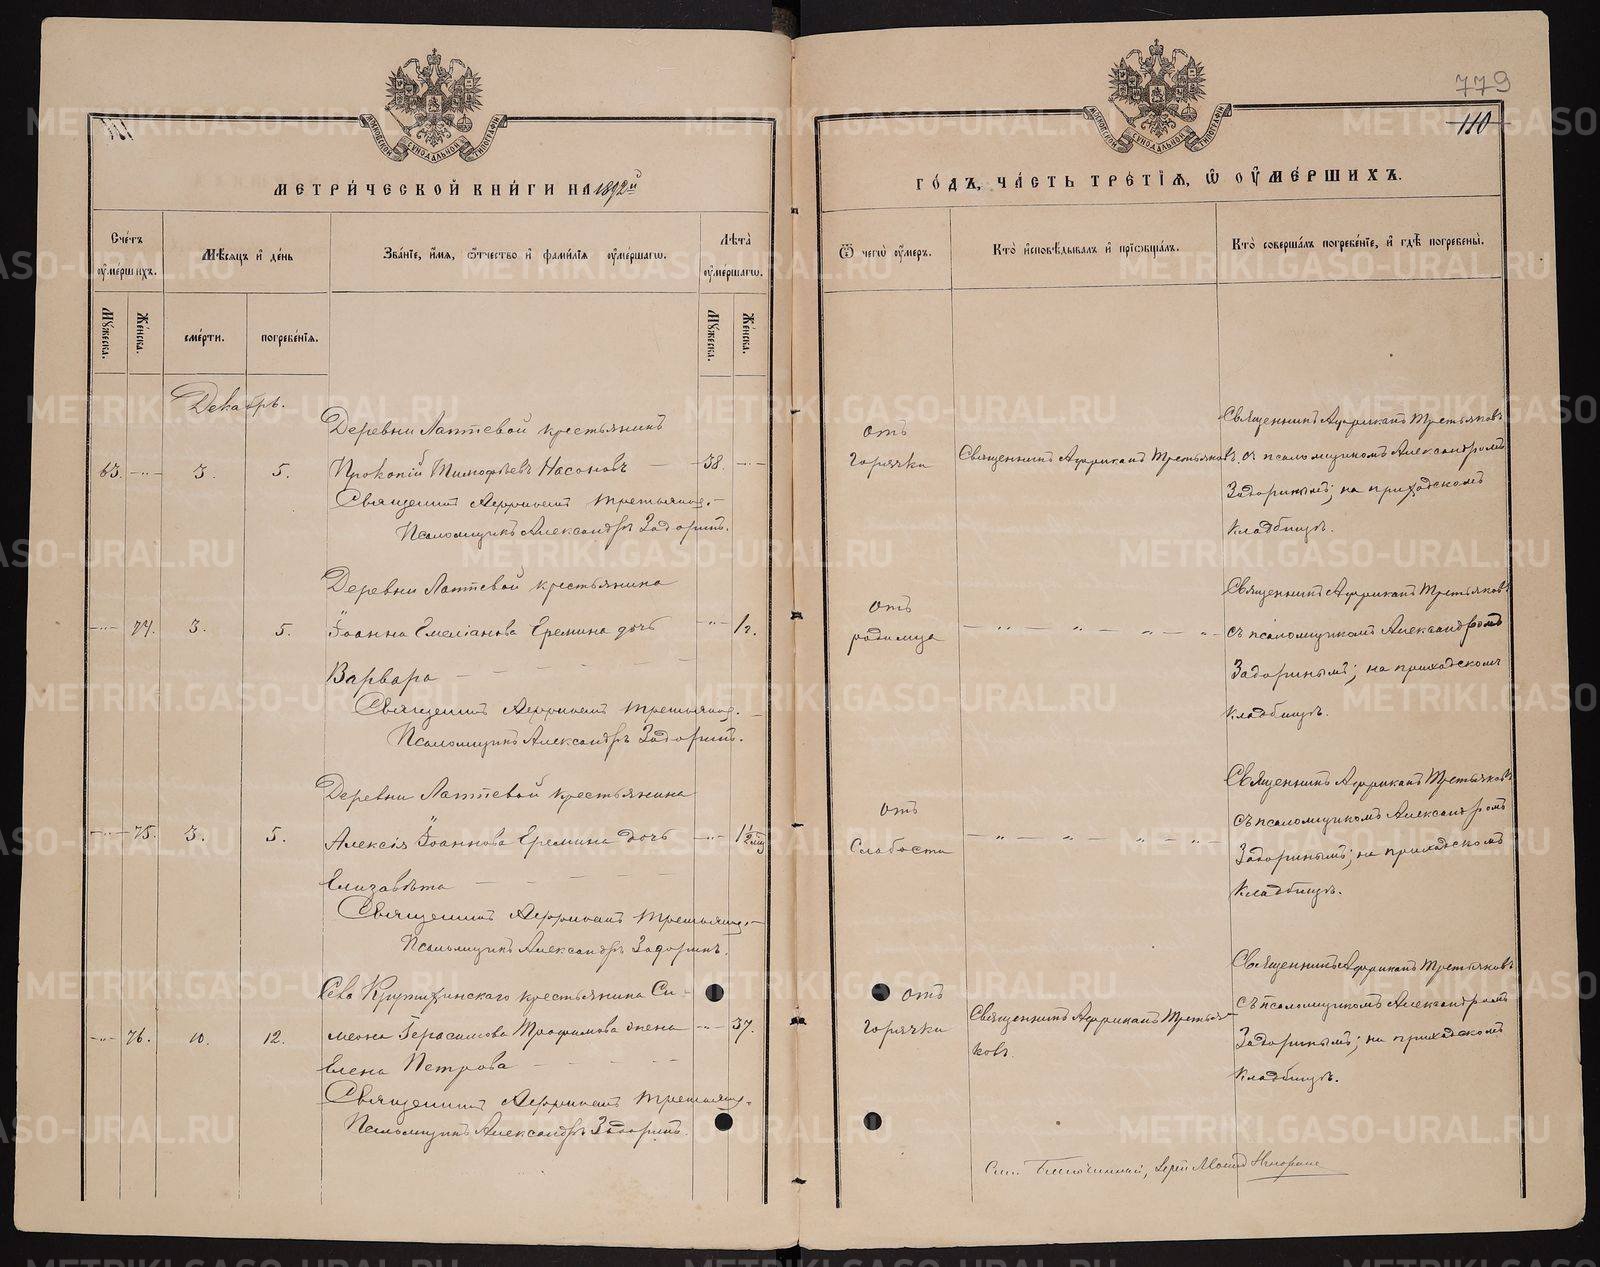 779
110
МОСКОВСКОЙ СУНОДАЛЬНОЙ ТИПОГРАФІИ
МЕТРИ́ЧЕСКОЙ КНИ́ГИ НА 1892й
Сче́тъ ᲂу҆ме́ршихъ.
Мѣ́сяцъ и҆ де́нь
Зва́нїе, и҆́мѧ, ѻ҆́тчество и҆ фами́лїѧ ᲂу҆ме́ршагѡ.
Лѣ́та ᲂу҆ме́ршагѡ.
Мꙋ́жеска.
Же́нска.
сме́рти.
погребе́нїѧ.
Мꙋ́жеска.
Же́нска.
Декабрь.
Деревни Лаптевой крестьянинъ
63. —"— 3. 5. Прокопій Тимофѣевъ Насоновъ — 38. —"—
Священникъ Африканъ Третьяков.
Псаломщикъ Александръ Задоринъ.
Деревни Лаптевой крестьянина
—"— 74. 3. 5. Іоанна Емеліанова Еремина дочь —"— 12.
Варвара — — — —
Священникъ Африканъ Третьяков.
Псаломщикъ Александръ Задоринъ.
Деревни Лаптевой крестьянина
—"— 75. 3. 5. Алексія Іоаннова Еремина дочь —"— 1 1/2 мц
Елизавѣта — — — —
Священникъ Африканъ Третьяков.
Псаломщикъ Александръ Задоринъ.
Села Крутихинскаго крестьянина Си-
—"— 76. 10. 12. меона Герасимова Трофимова жена —"— 37.
Елена Петрова — — —
Священникъ Африканъ Третьяков.
Псаломщикъ Александръ Задоринъ.
ГО́ДЪ, ЧА́СТЬ ТРЕ́ТЇѦ, Ѡ҆ ОУ҆МЕ́РШИХЪ.
Ѿ чегѡ̀ ᲂу҆́меръ.
Кто̀ и҆сповѣ́дывалъ и҆ прїѡбща́лъ.
Кто̀ соверша́лъ погребе́нїе, и҆ гдѣ̀ погребены̀.
отъ
горячки
Священникъ Африканъ Третьяковъ.
Священникъ Африканъ Третьяковъ
съ псаломщикомъ Александромъ
Задоринымъ; на приходскомъ
кладбищѣ.
отъ
родимца
— " — " — " — " —
Священникъ Африканъ Третьяковъ
съ псаломщикомъ Александромъ
Задоринымъ; на приходскомъ
кладбищѣ.
отъ
слабости
— " — " — " — " —
Священникъ Африканъ Третьяковъ
съ псаломщикомъ Александромъ
Задоринымъ; на приходскомъ
кладбищѣ.
отъ
горячки
Священникъ Африканъ Третья-
ковъ.
Священникъ Африканъ Третьяковъ
съ псаломщикомъ Александромъ
Задоринымъ; на приходскомъ
кладбищѣ.
Благочинный, Іерей
METRIKI.GASO-URAL.RU